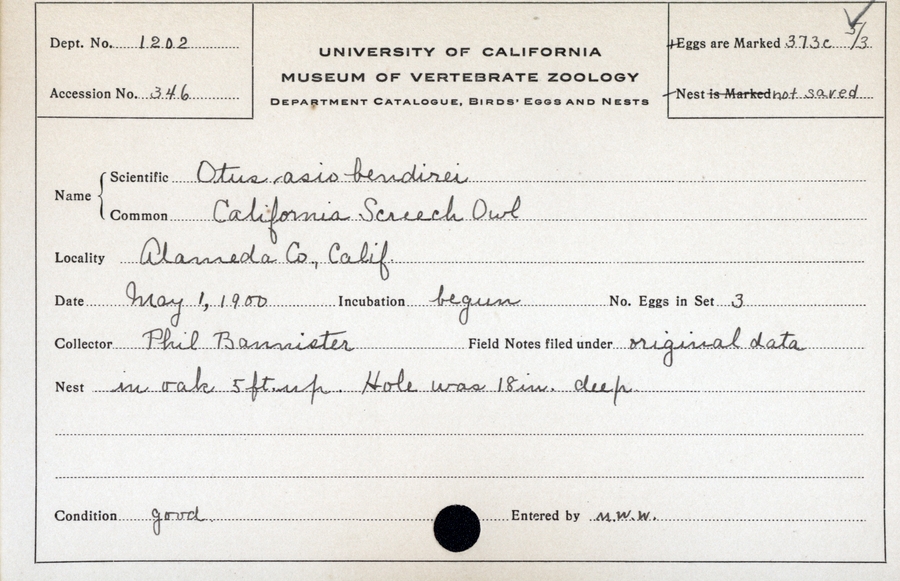 Dept. No. 1202
UNIVERSITY OF CALIFORNIA
MUSEUM OF VERTEBRATE ZOOLOGY
DEPARTMENT CATALOGUE, BIRDS' EGGS AND NESTS
Eggs are Marked 373c 5/3
Accession No. 346
Nest is Marked not saved
Name
Scientific Otus asio bendirei
Common California Screech Owl
Locality Alameda Co., Calif.
Date May 1, 1900 Incubation begun No. Eggs in Set 3
Collector Phil Bannister Field Notes filed under original data
Nest in oak 5 ft. up. Hole was 18 in. deep
Condition good. Entered by M.W.W.